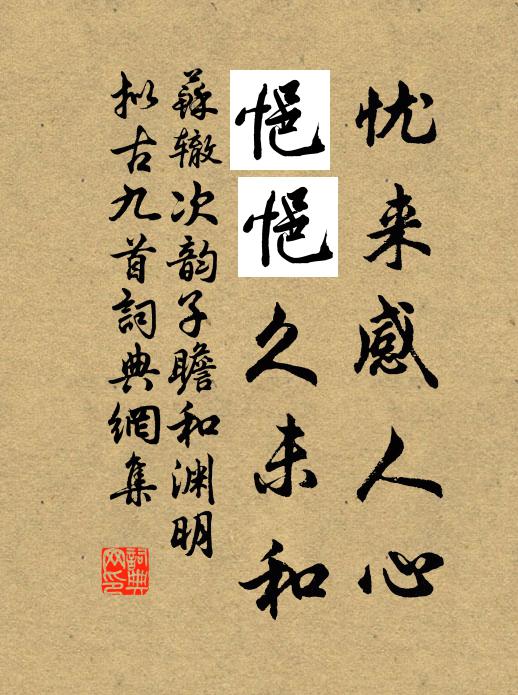 忧来感人心
悒悒久未和
蘇辙次韵子瞻和渊明
拟古九首詞典網集
詞典网印